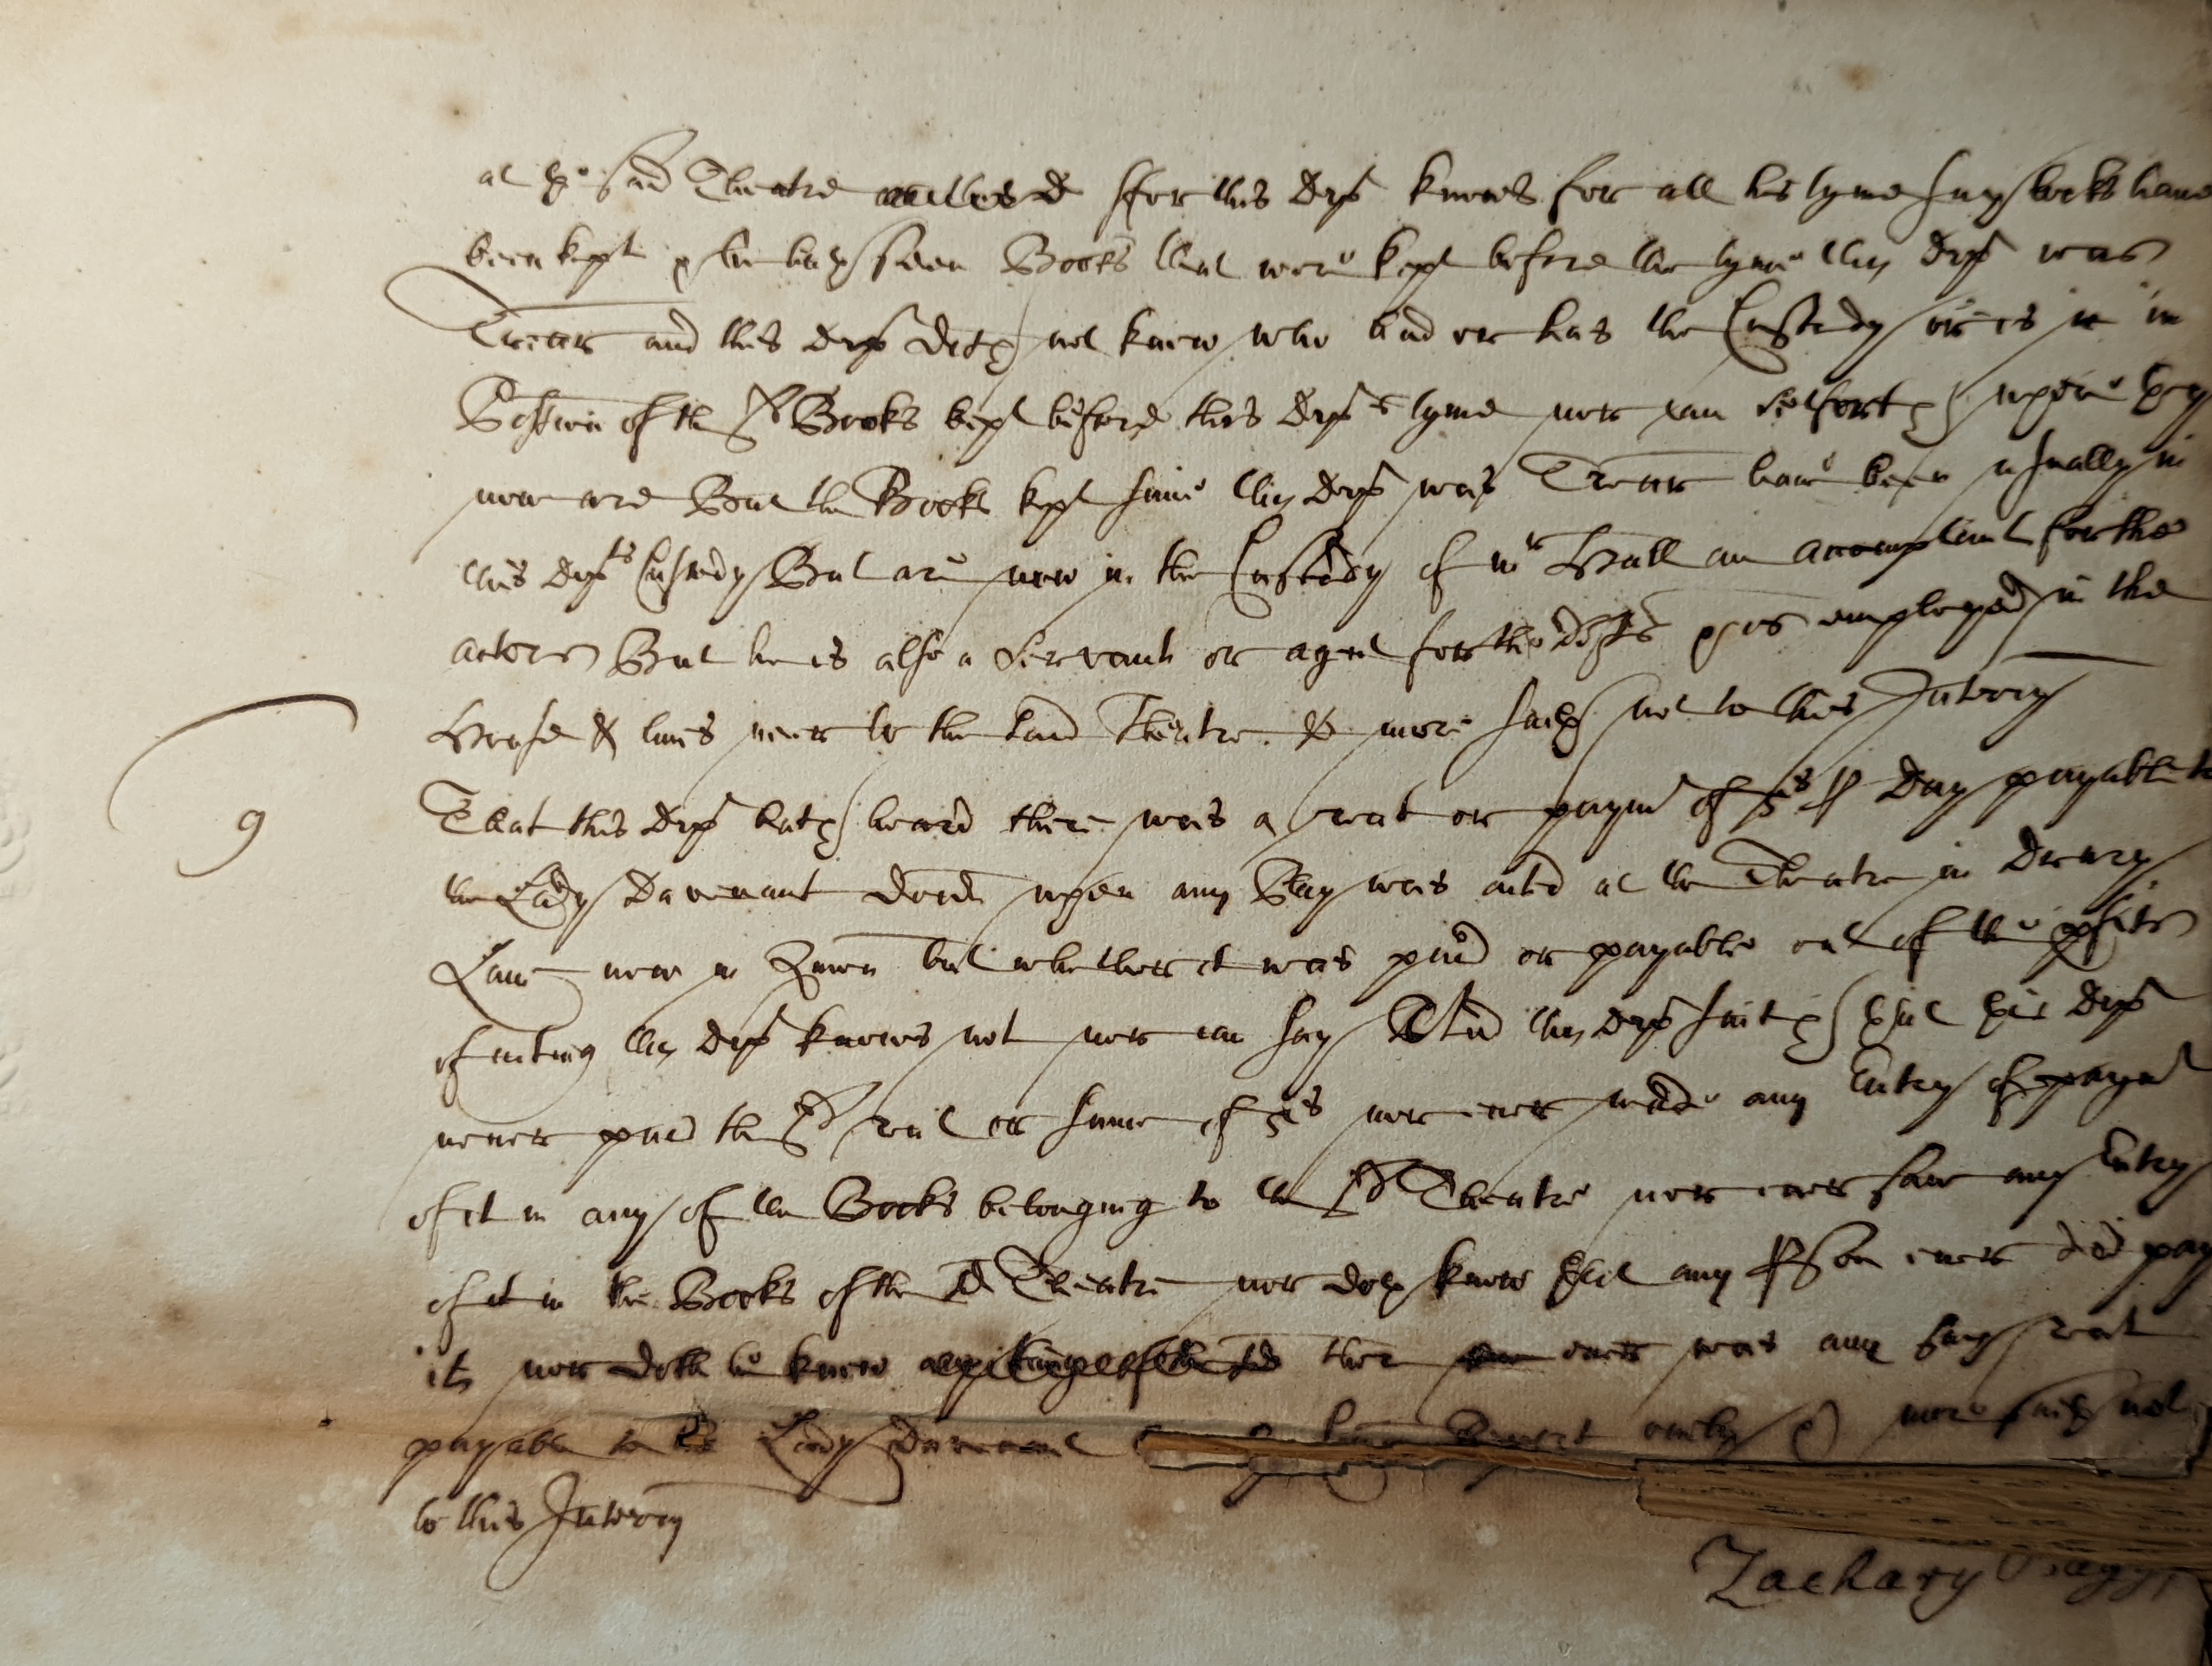 at ye said Theatre for this Dept knows for all his tyme such books have
been kept & he hath seen Books that were kept before the tyme this Dept was
Trear and this Dept doth not know who had or has the Custody or is in
of the sd Books kept before this Depts tyme nor can sett forth where they
now are But the Books kept since this Dept was Trear have been usually in
this Depts Custody But are now in the Custody of mr Hall an accomptant for the
actors But he is also a Servant or agent for the Defts & is employed in the
House & lives neer to the said Theatre & more saith not to this Interry
9 That this Dept hath heard there was a rent or paymt of 5s p Day payable to
the Lady Davenant when any Play was acted at the Theatre in Drury
Lane now in but whether it was paid or payable out of the pfits
of acting this Dept knows not nor can say And this Dept saith that he this Dept
never paid the sd rent or summe of 5s nor ever made any Entry of paymt
of it in any of the Books belonging to the sd Theatre nor ever saw any Entry
of it in the Books of the sd Theatre nor doth know that any pson ever did pay
it nor doth he know ther ever was any such rent
payable to the Lady Davenant only & more saith not
to this Interry
Zachary